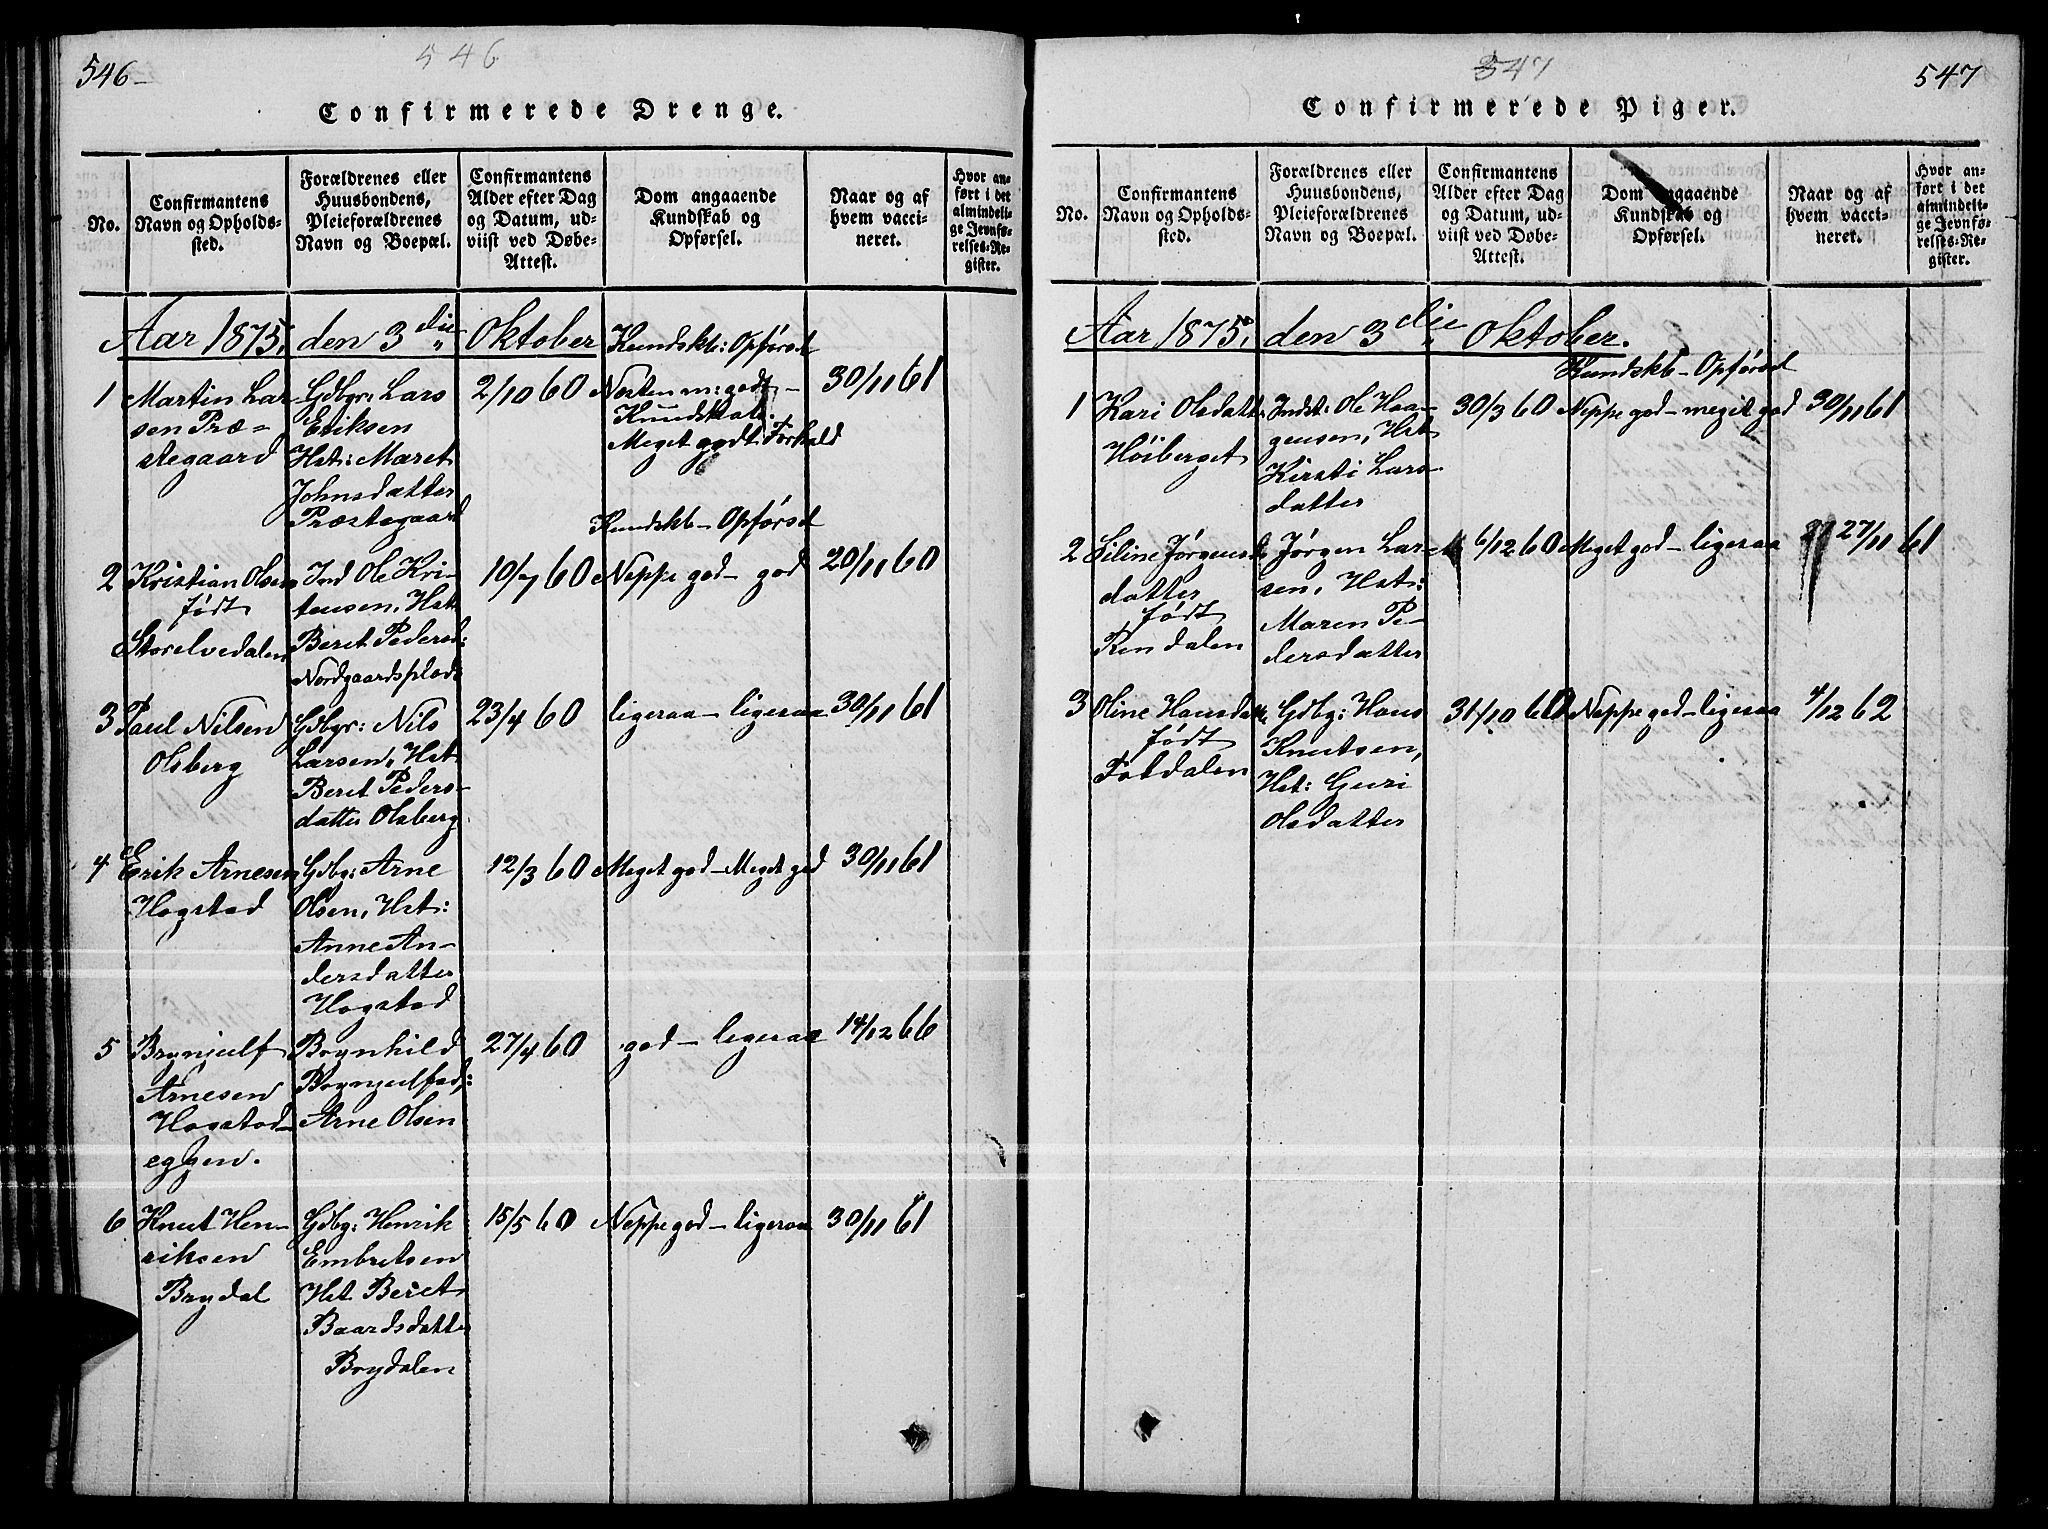 546
546
Confirmerede Drenge.
No.
Confirmantens
Navn og Opholds-
sted.
Forældrenes eller
Huusbondens,
Pleieforældrenes
Navn og Boepæl.
Confirmantens
Alder efter Dag
og Datum, ud-
viist ved Døbe-
Attest.
Dom angaaende
Kundskab og
Opførsel.
Naar og af
hvem vacci-
neret.
Hvor an-
ført i det
almindeli-
ge Jevnfø-
relses-Re-
gister.
Aar 1875, den 3die Oktober
Kundskb: Opførsel
1
Martin Lar-
sen Præ-
stegaard
Gdbgr: Lars
Eriksen
Hst: Maret
Johnsdatter
Præstegaard
2/10 60
Nesten m: godt
Kundskab.
Meget godt Forhold
30/11 61
Kundskb - Opførsel
2
Kristian Olsen
født
Storelvedalen
Ind Ole Kri-
stensen, Hst
Beret Pedersd:
Nordgaardsplads
10/7 60
Neppe god - god
20/11 60
3
Paul Nilsen
Olsberg
Gdbgr: Nils
Larsen, Hst
Beret Peders-
datter Olsberg
23/4 60
ligesaa - ligesaa
30/11 61
4
Erik Arnesen
Hogstad
Gdbg: Arne
Olsen, Hst:
Anne An-
dersdatter
Hogstad
12/3 60
Meget god - Meget god
30/11 61
5
Brynjulf
Arnesen
Hogstad-
eggen.
Brynhild
Brynjulfsd:
Arne Olsen
27/4 60
god - ligesaa
14/12 66
6
Knut Hen-
riksen
Brydal
Gdbg: Henrik
Embretsen
Hst Beret
Baardsdatter
Brydalen
15/5 60
Neppe god - ligesaa
30/11 61
547
547
Confirmerede Piger.
No.
Confirmantens
Navn og Opholds-
sted.
Forældrenes eller
Huusbondens,
Pleieforældrenes
Navn og Boepæl.
Confirmantens
Alder efter Dag
og Datum, ud-
viist ved Døbe-
Attest.
Dom angaaende
Kundskab og
Opførsel.
Naar og af
hvem vacci-
neret.
Hvor an-
ført i det
almindeli-
ge Jevnfø-
relses-Re-
gister.
Aar 1875, den 3die Oktober.
Kundskb - Opførsel
1
Kari Olsdatter
Høiberget
Indst: Ole Haa-
gensen, Hst
Kirsti Lars-
datter
30/3 60
Neppe god - meget god
30/11 61
2
Siline Jørgens-
datter
født
Rendalen
Jørgen Lar-
sen, Hst:
Maren Pe-
dersdatter
6/12 60
Meget god - ligesaa
27/11 61
3
Oline Hansdatter
født
Foldalen
Gdbg: Hans
Knutsen,
Hst: Guri
Olsdatter
31/10 60
Neppe god - ligesaa
4/12 62